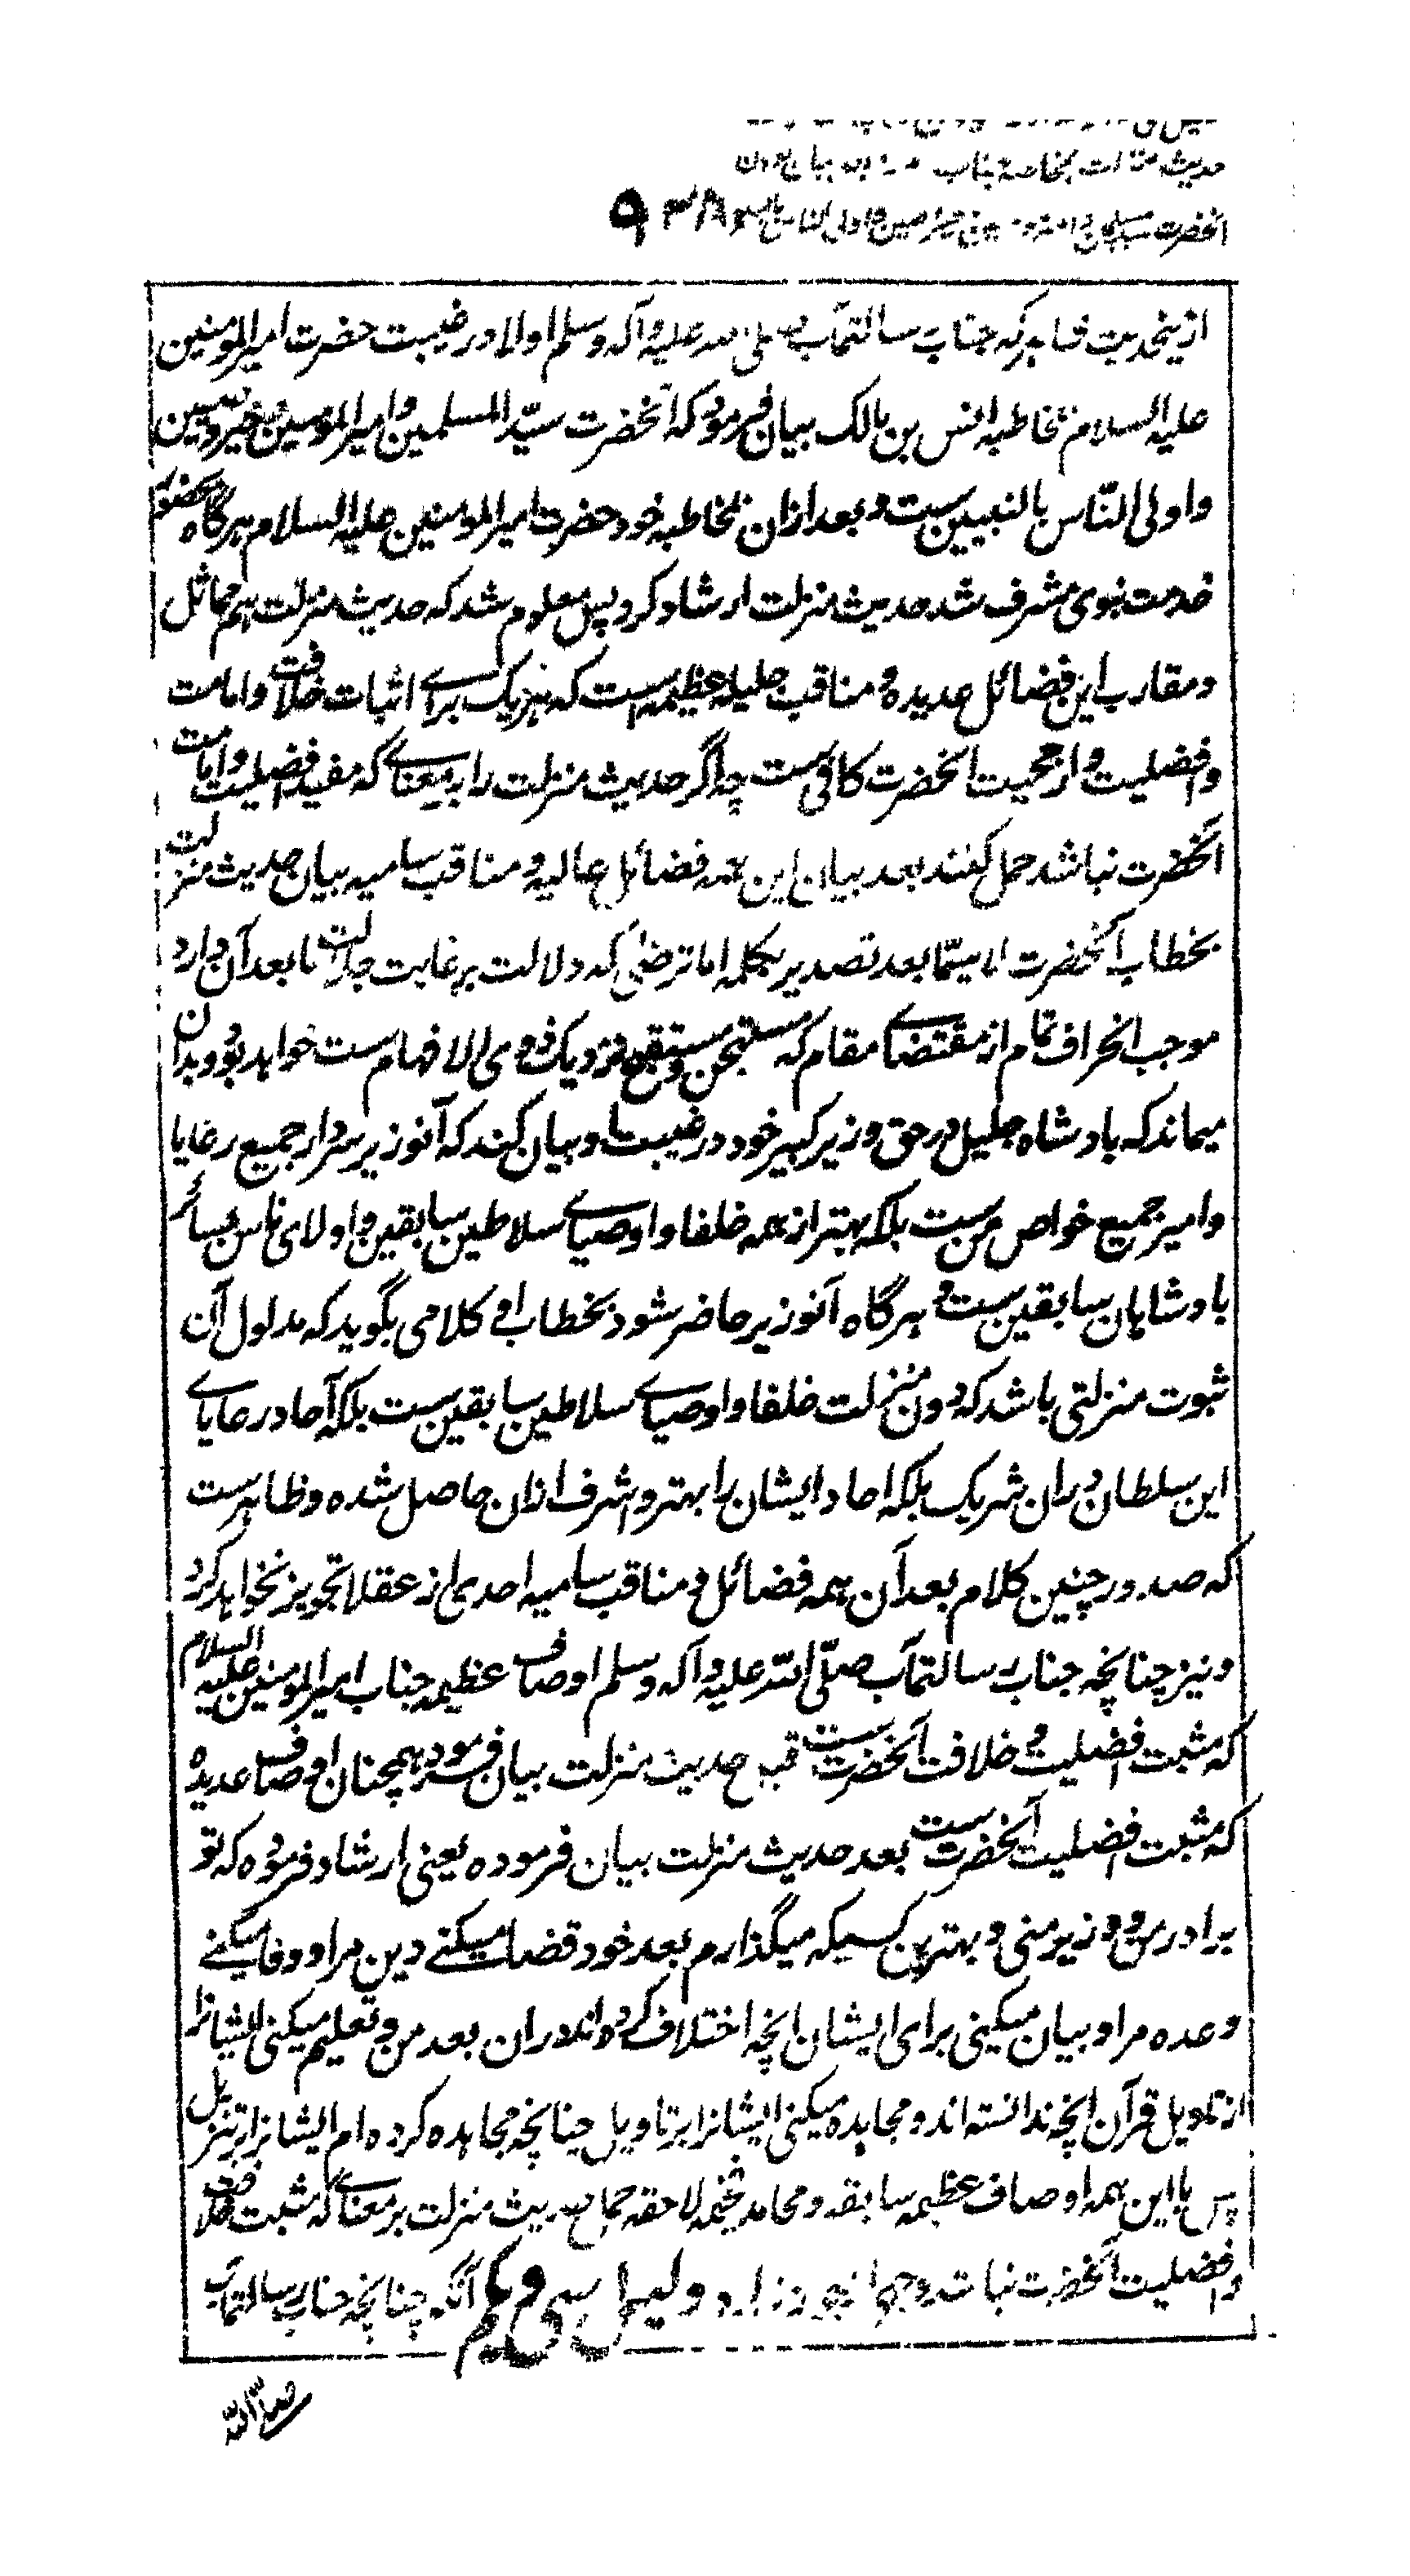 حدیث منزلت بمخاطبهٔ جناب بیان بودن
آنحضرت سید المسلمین
ازینحدیث ظاهرست که جناب رسالتمآب صلی الله علیه وآله وسلم اولا در غیبت حضرت امیرالمومنین
علیه السلام بمخاطبه انس بن مالک بیان فرموده که آنحضرت سیّد المسلمین و امیر المؤمنین و خیر وصیین
و اولی النّاس بالنبیین ست و بعد ازان بمخاطبه خود حضرت امیر المومنین علیه السلام هرگاه بحضور
خدمت نبوی مشرف شد حدیث منزلت ارشاد کرد پس معلوم شد که حدیث منزلت هم مماثل
و مقارب این فضائل عدیده و مناقب جلیله عظیمه است که هریک برای اثبات خلافت و امامت
و افضلیت و ارجحیت آنحضرت کافی ست چه اگر حدیث منزلت را بر معنای که مفید افضلیت و امامت
آنحضرت نباشد حمل کنند بعد بیان این همه فضائل عالیه و مناقب سامیه بیان حدیث منزلت
بخطاب آنحضرت لا سیّما بعد تصدیر بکلمه اما ترضی که دلالت بر غایت جلالت ما بعد آن دارد
موجب انحراف تمام از مقتضای مقام که مستهجن و مستقبح نزدیک ذوی الافهام ست خواهد بود و بدان
میماند که بادشاه جلیل در حق وزیر کبیر خود در غیبت او بیان کند که آنوزیر سردار جمیع رعایا
و امیر جمیع خواص من ست بلکه بهتر از همه خلفا و اوصیای سلاطین سابقین و اولای ناس بسائر
بادشاهان سابقین ست و هرگاه آنوزیر حاضر شود بخطاب او کلامی بگوید که مدلول آن
ثبوت منزلتی باشد که دون منزلت خلفا و اوصیای سلاطین سابقین ست بلکه آحاد رعایای
این سلطان دران شریک بلکه احاد ایشان را بهتر و اشرف ازان حاصل شده و ظاهرست
که صدور چنین کلام بعد آن همه فضائل و مناقب سامیه احدی از عقلا تجویز نخواهد کرد
و نیز چنانچه جناب رسالتمآب صلّی الله علیه وآله وسلم اوصاف عظیمه جناب امیر المومنین علیه السلام
که مثبت افضلیت و خلافت آنحضرت ست قبل حدیث منزلت بیان فرموده همچنان اوصاف عدیده
که مثبت افضلیت آنحضرت ست بعد حدیث منزلت بیان فرموده یعنی ارشاد فرموده که تو
برادر من و وزیر منی و بهترین کسیکه میگذارم بعد خود قضا میکنے دین مرا و وفا میکنے
وعده مرا و بیان میکنی برای ایشان انچه اختلاف کرده اند دران بعد من و تعلیم میکنی ایشانرا
از تاویل قرآن انچه ندانسته اند و مجاهده میکنی ایشانرا بر تاویل چنانچه مجاهده کرده ام ایشانرا بر تنزیل
پس با این همه اوصاف عظیمه سابقه و محامد فخیمه لاحقه حمل حدیث منزلت بر معنای که مثبت خلافت
و افضلیت آنحضرت نباشد وجهی از جواز ندارد و دلیل سی و یکم آنکه چنانچه جناب رسالتمآب
صلی الله